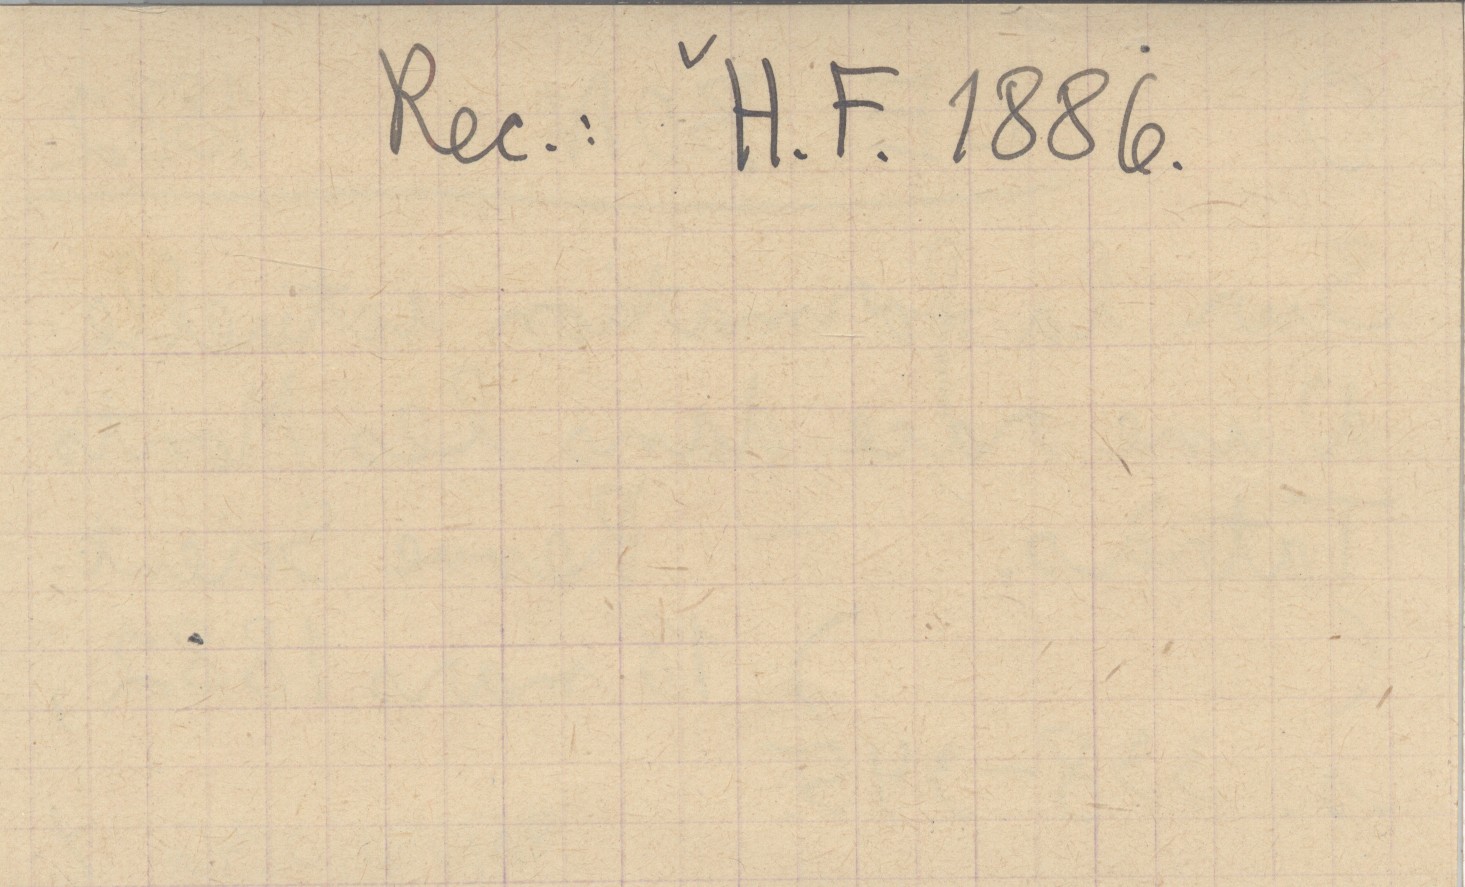 Rec.: ˇH.F. 1886.